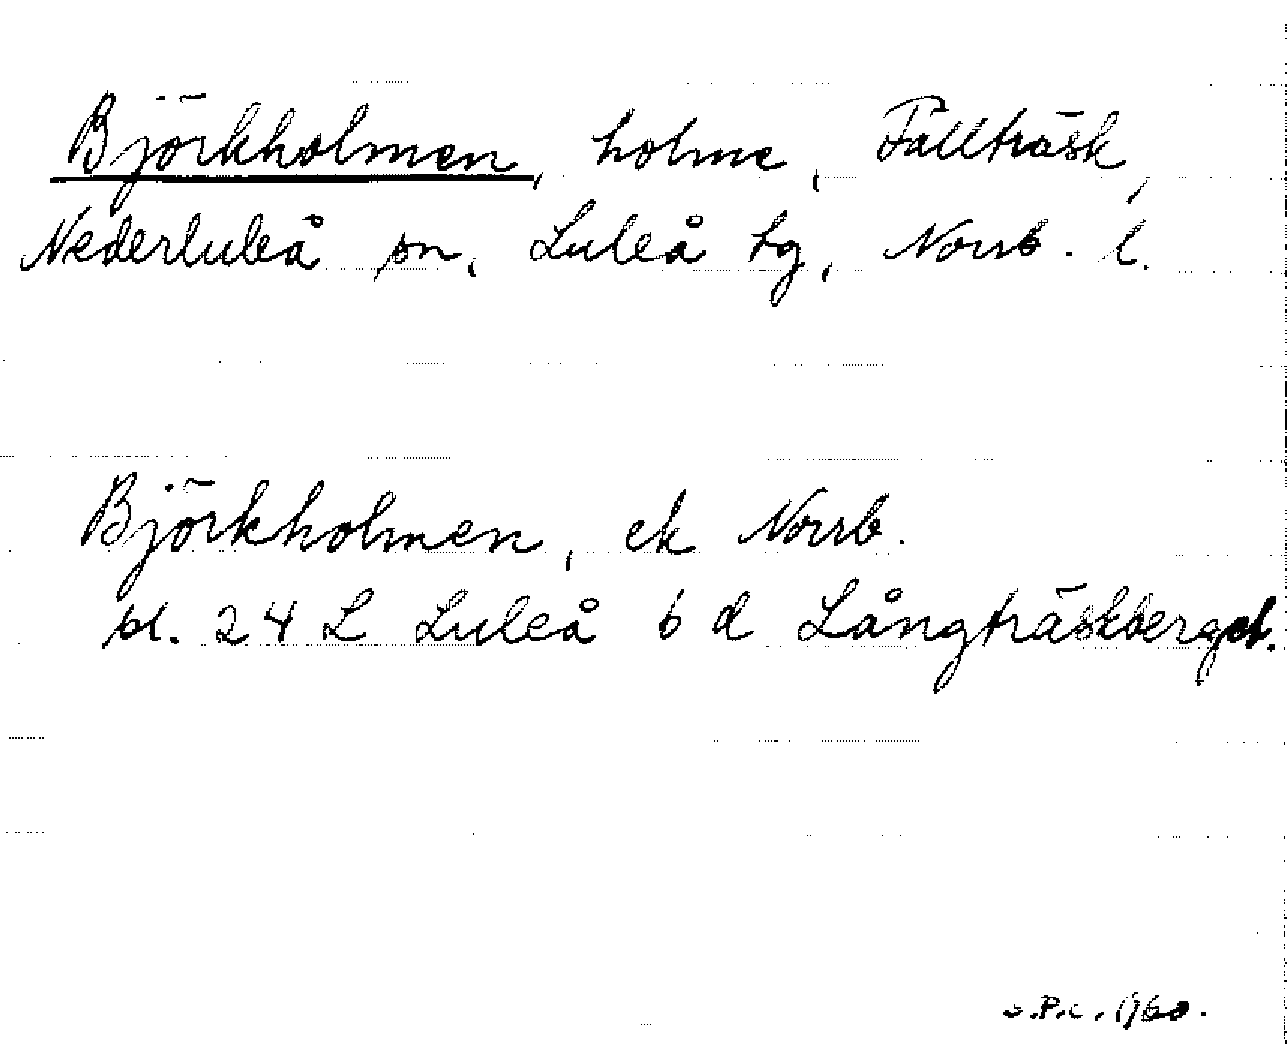 Björkholmen, holme, Fällträsk,
Nederluleå sn, Luleå tg, Norrb. l.
Björkholmen, ek Norrb.
bl. 24 L Luleå 6 d Långträskberget.
P.C. 1960.